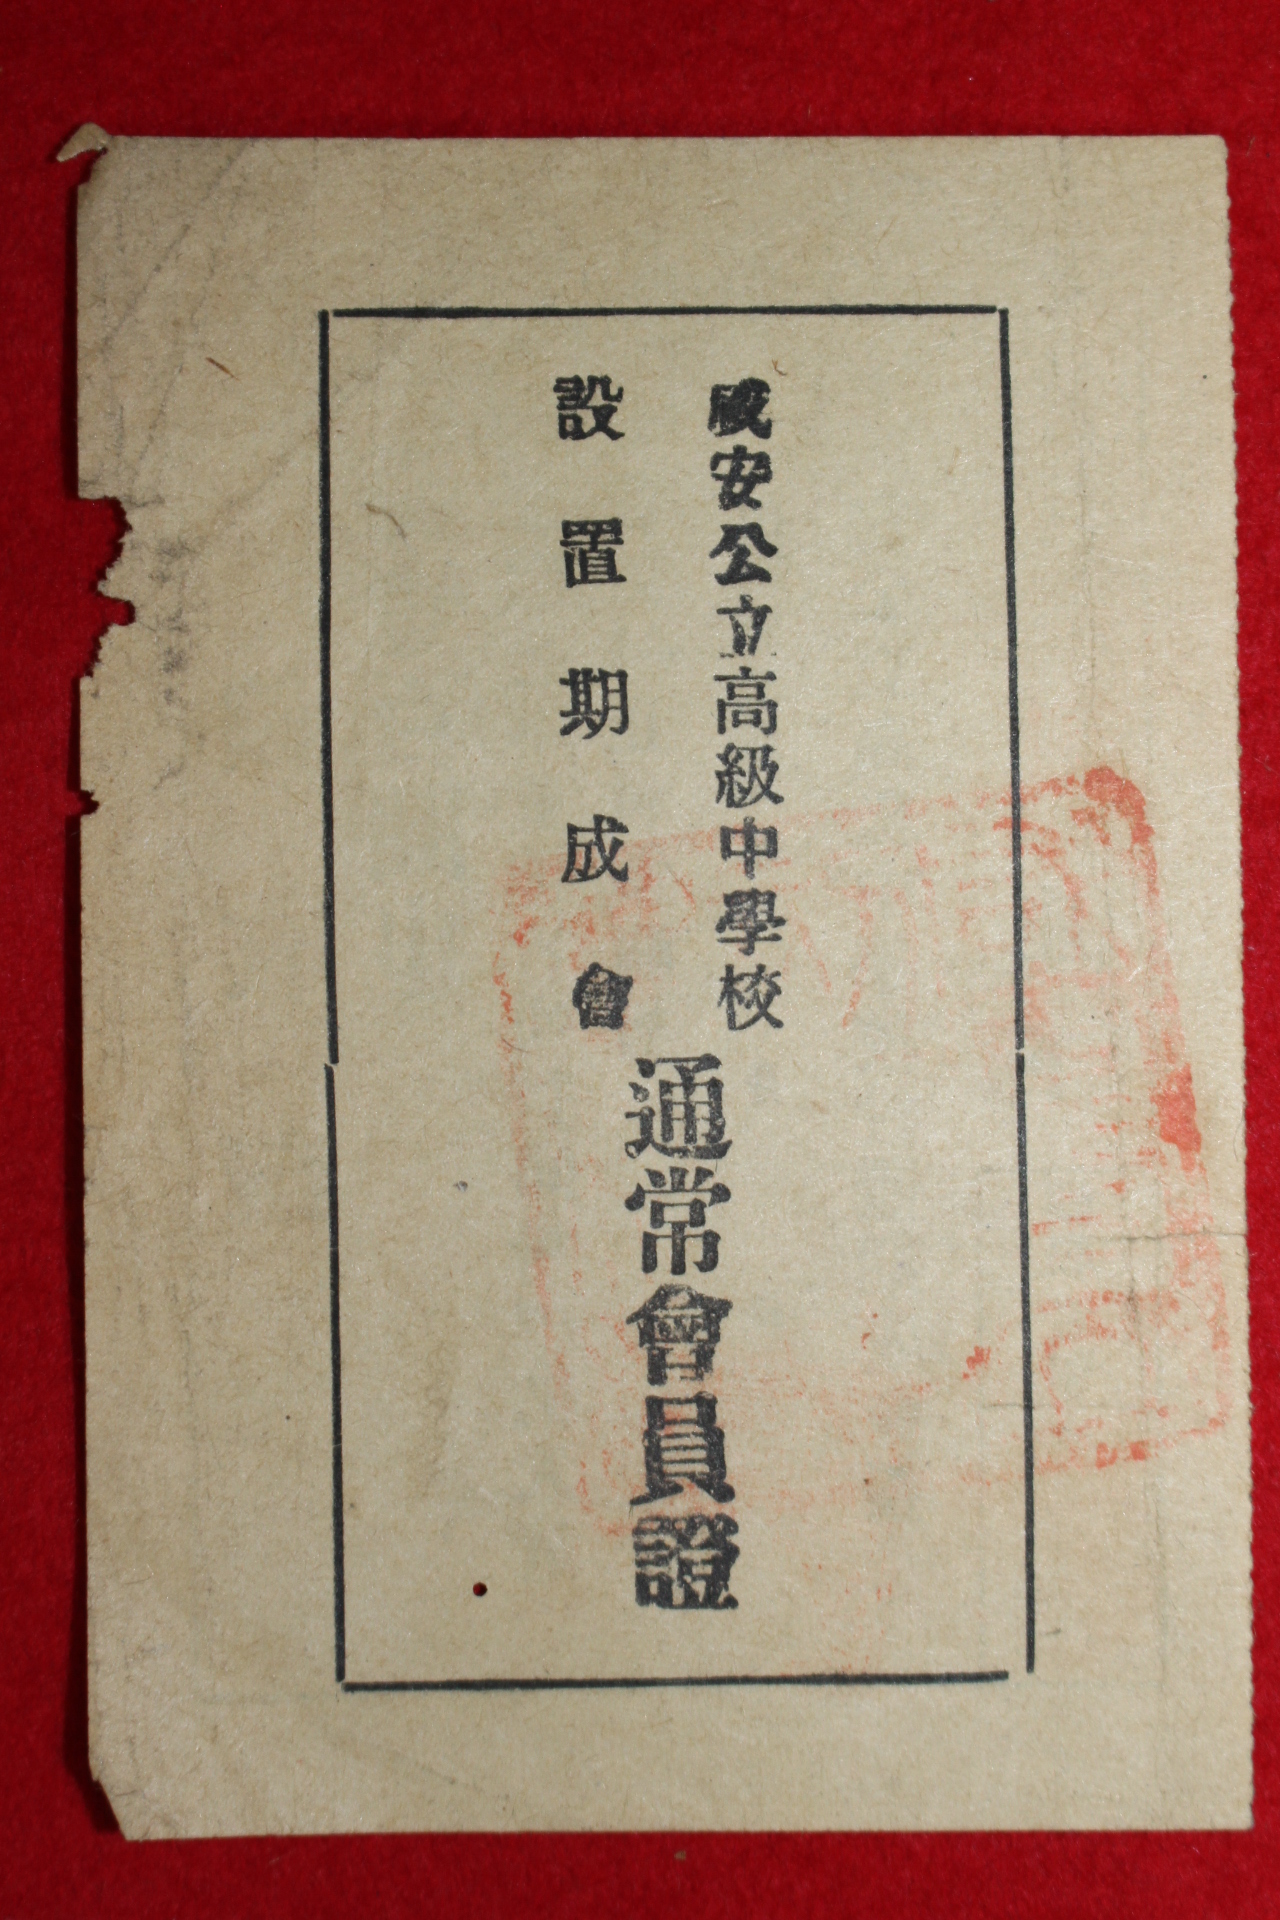 咸安公立高級中學校
設置期成會
通常會員證